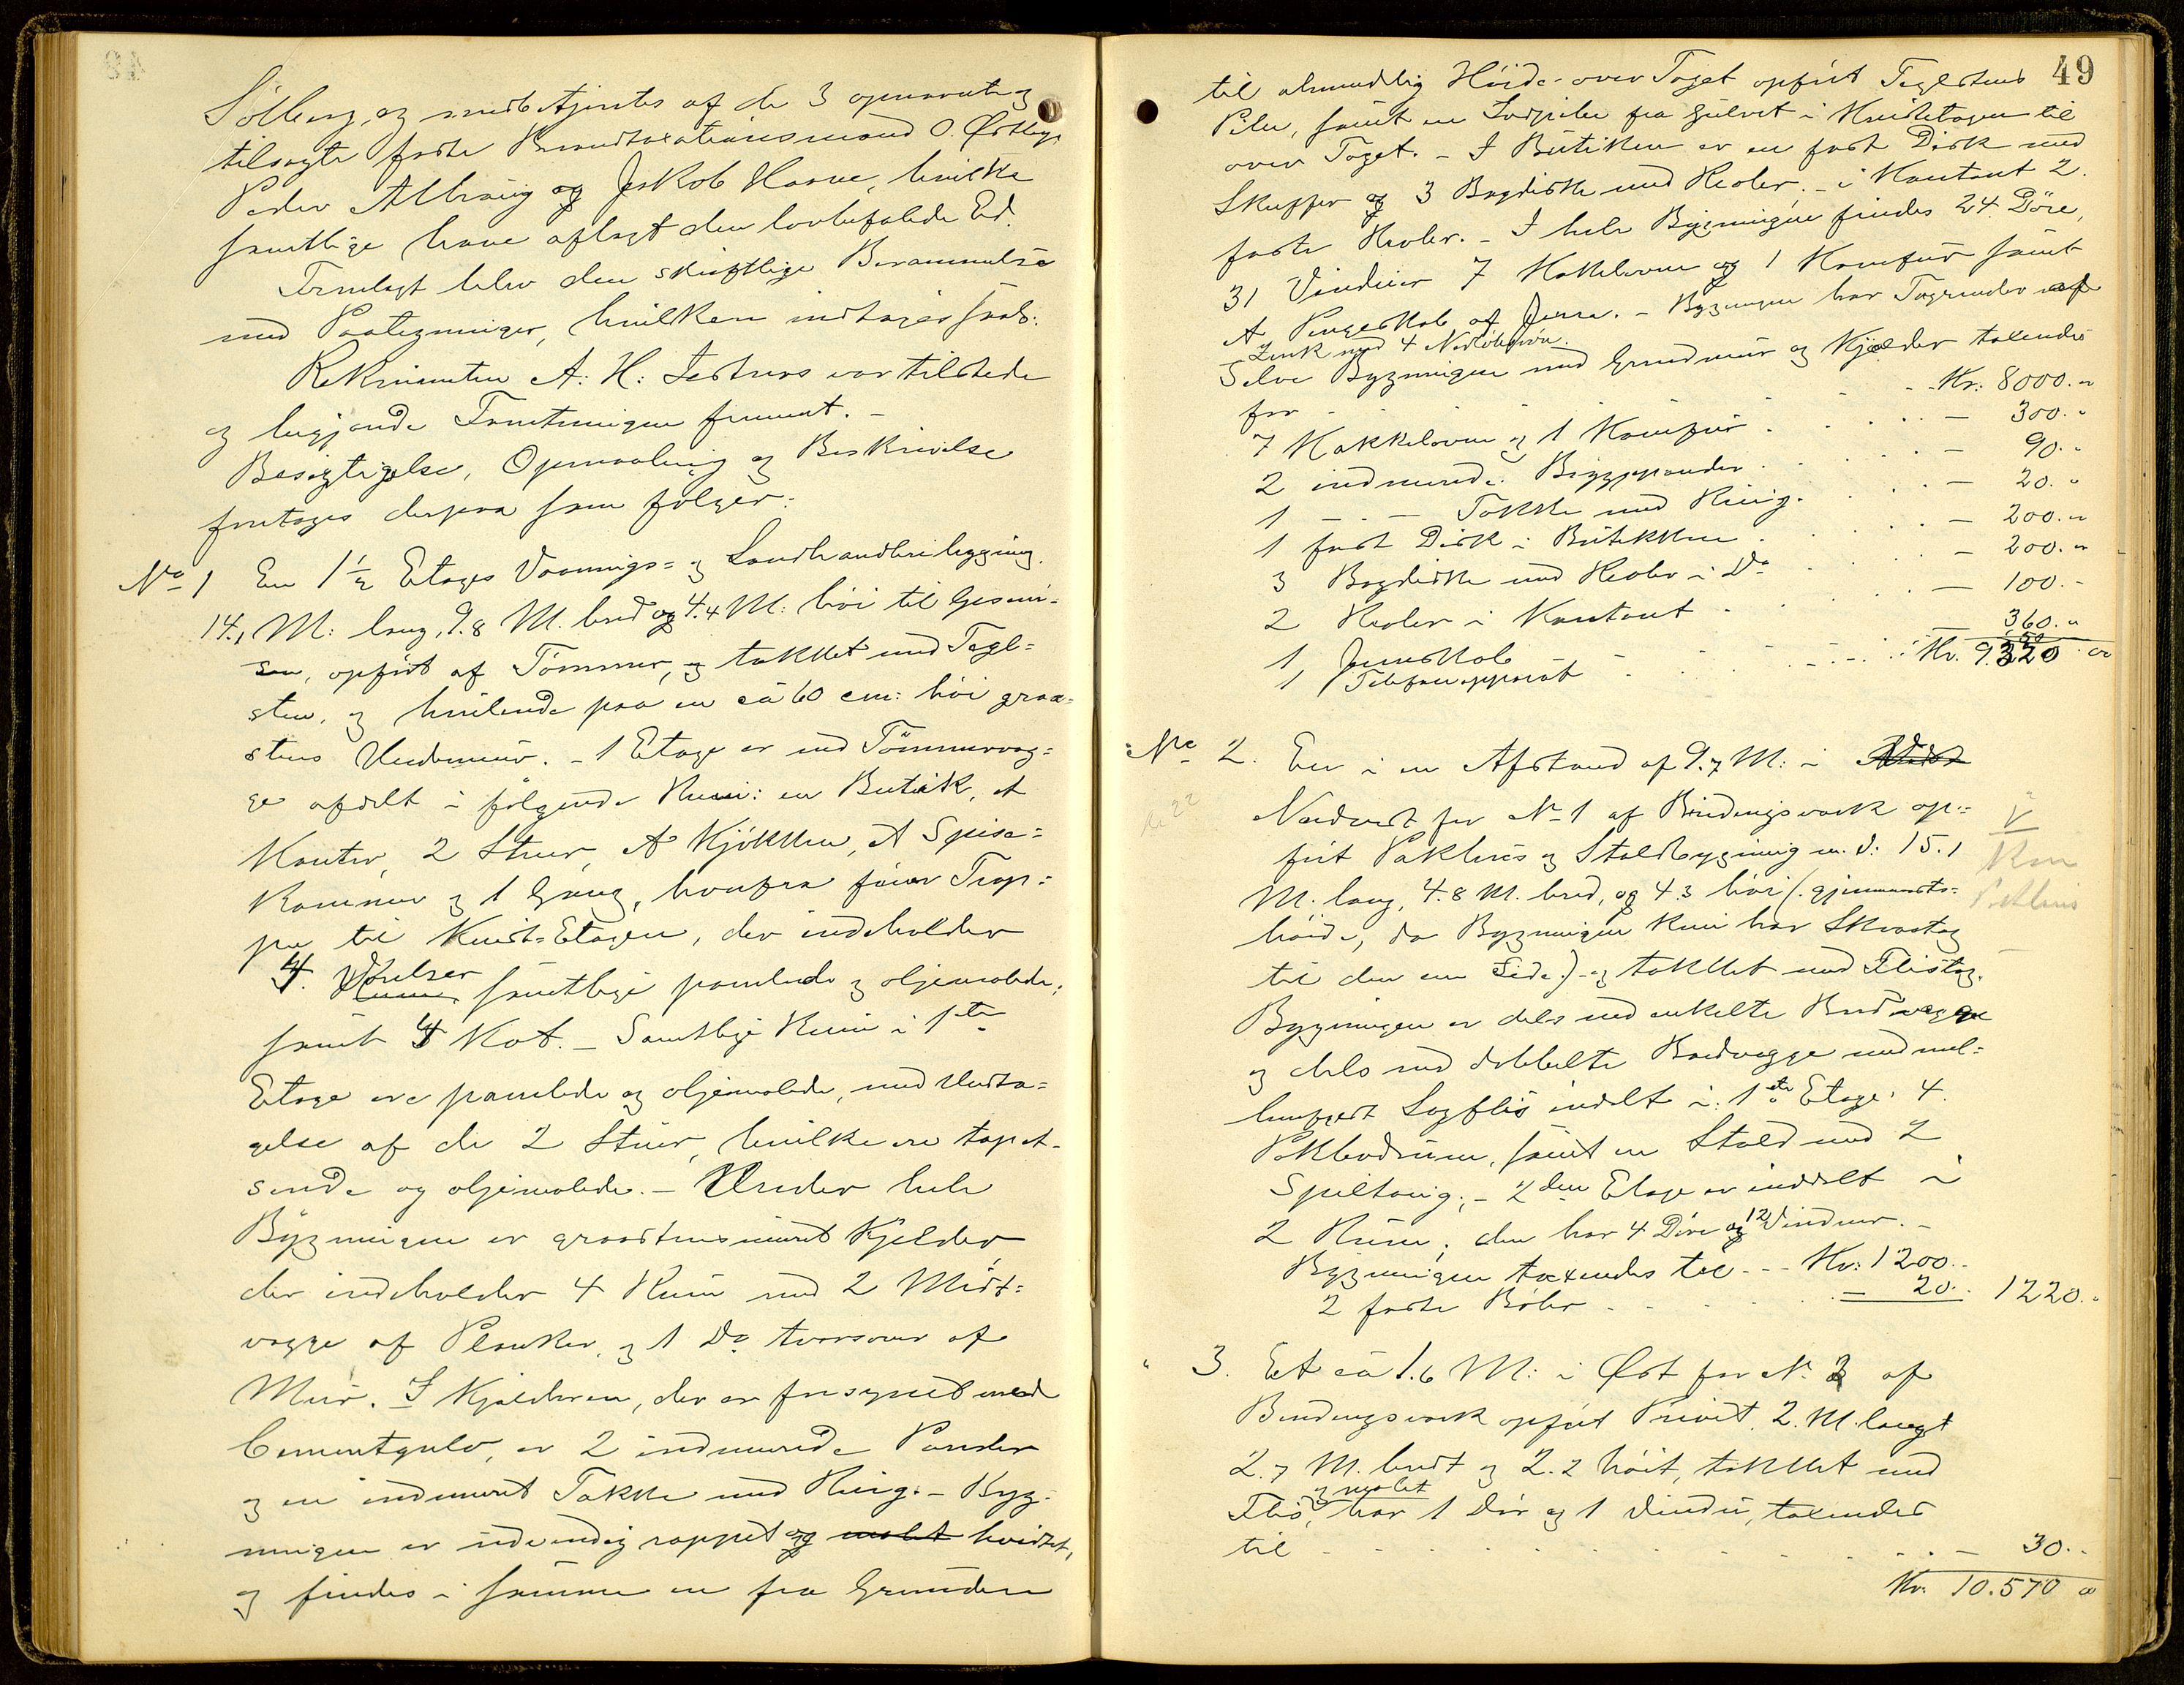 49
Sölberg, og medbetjentes af de 3 opnævnte og
tilsagte faste Brandtaxationsmænd O. Östbye
Peder Albrigt og Jakob Haave, hvilke
samtlige have aflagt den lovbefalede Ed.
Fremlagt blev den skriftlige Berammelse
med Paategninger, hvilken indtages saal:
Rekvirenten A: H: var tilstede
og begjærede Forretningen fremmet. -
Besigtigelse, Opmaaling og Beskrivelse
foretoges derpaa som følger:
No 1 En 1½ Etages Vaanings= og Landhandleribygning.
14.1 M: lang, 9.8 M. bred og 4.4 M: höi til Gesim-
sen, opfört af Tömmer, og tækket med Tegl=
sten, og hvilende paa en ca 60 cm: höi graa-
stens Undermur. - 1 Etage er med Tömmervæg=
ge afdelt i fölgende Rum: en Butik, et
Kontor, 2 Stuer, et Kjökken, et Spise=
kammer og 1 Gang, hvorfra förer Trap=
pe til Kvist=Etagen, der indeholder
4 Værelser samtlige panelede og oljemalede,
samt 4 Kot. - Samtlige Rum i 1ste
Etage ere panelede og oljemalede, med Undta=
gelse af de 2 Stuer, hvilke ere tapet-
serede og oljemalede. - Under hele
Bygningen er graastensmuret Kjelder
der indeholder 4 Rum med 2 Midt=
vægge af Planker, og 1 Do tversover af
Mur. I Kjelderen, der er forsynet med
Cementgulv, er 2 indmurede Pander
og en indmuret Takke med Ring. - Byg-
ningen er udvendig rappet og malet hvidtet,
og findes i samme en fra Grunden
49
til almindelig Höide over Taget opfört Teglstens
Pibe, samt en Lodpibe fra Gulvet i Kvistetagen til
over Taget. - I Butiken er en fast Disk med
Skuffer og 3 Bagdiske med Reoler. - i Kontoret 2.
faste Reoler. - I hele Bygningen findes 24 Döre,
31 Vinduer 7 Kakkelovne og 1 Komfur samt
et Pengeskab af Jern. - Bygningen har Tagrender af
Zink med 4 Nedlöbsrör.
Selve Bygningen med Grundmur og Kjælder taxeredes
for - - - Kr: 8000.-
7 Kakkelovne og 1 Komfur . . . - 300.-
2 indmurede Bryggepander . . . - 90.-
1 - - Takke med Ring. . . . - 20.-
1 fast Disk i Butikken . . . - 200.-
3 Bagdiske med Reoler i Do . . . - 200.-
2 Reoler i Kontoret . . . - 100.-
1 Jernskab
1 Telefonapparat . . . 360.-
Kr. 9.320.00
No 2. En i en Afstand af 9.7 M: i
Nordvest for No 1 af Bindingsværk op=
fört Pakhus og Staldbygning m. v: 15.1
M. lang, 4.8 M. bred, og 4.3 höi (gjennemsnits=
höide, da Bygningen kun har Skraatag
til den ene Side.) - og tækket med Flistag.
Bygningen er dels med enkelte Bordvægge
og dels med dobbelte Bordvægge med mel=
lemfyldt Sagflis inddelt i: 1ste Etage: 4.
Pakbodrum, samt en Stald med 2
Spiltaug; - 2den Etage er inddelt i
2 Rum; den har 4 Döre og 12 Vinduer. -
Bygningen taxeredes til - - Kr: 1200.-
2 faste Böler . . . - 20.- 1220.-
" 3. Et ca 1.6 M: i Öst for No 2 af
Bindingsværk opfört Privet, 2. M. langt
2.7 M. bredt og 2.2 höit, tækket med
og malet
Flis, har 1 Dör og 1 Vindu, taxeredes
til . . . - 30.-
Kr. 10.570 00
V
Kun
Pakhus